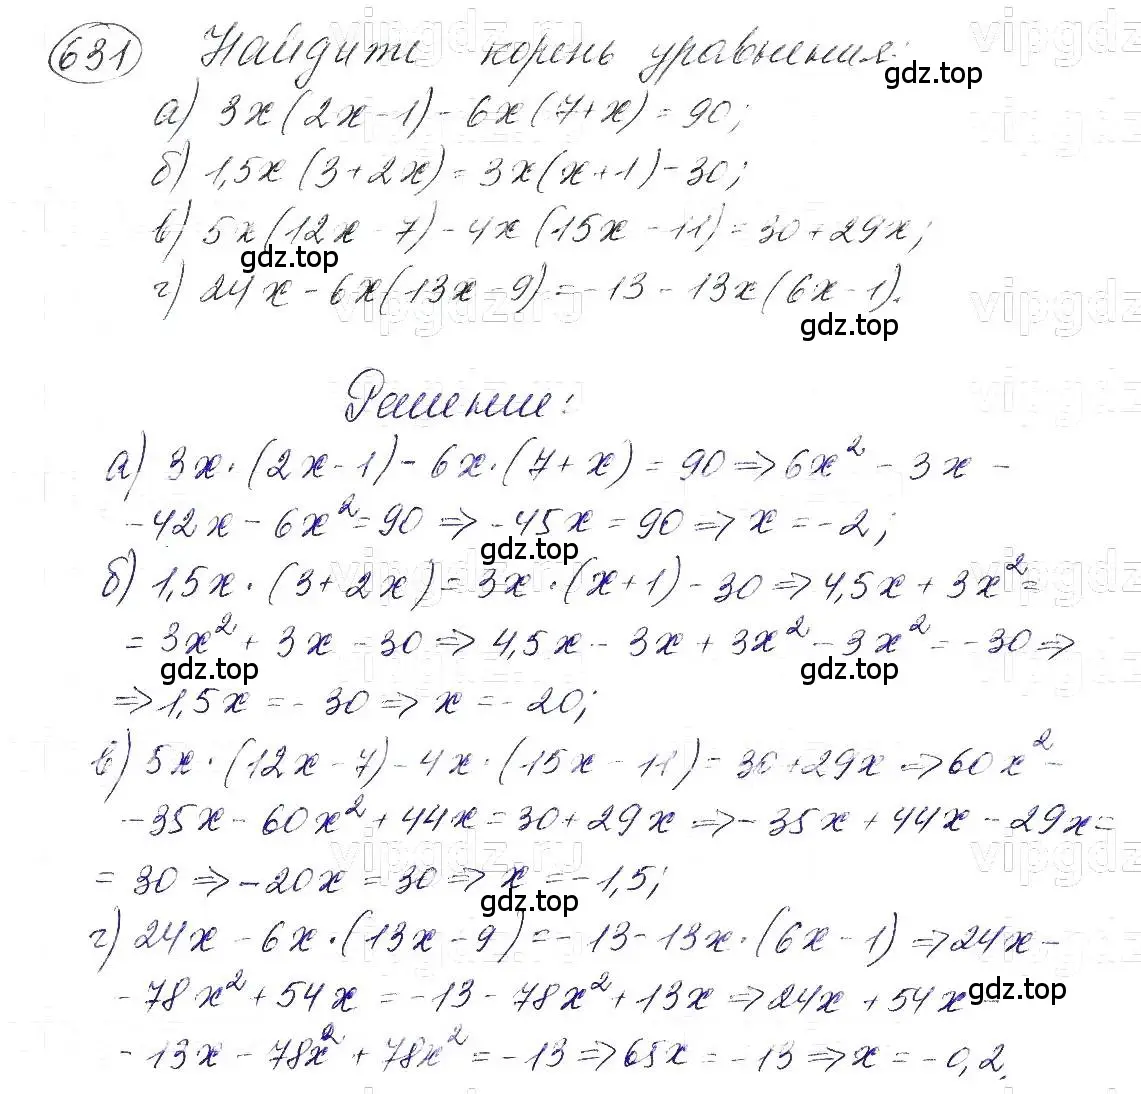 631 Найдите корень уравнения:
а) 3x(2x-1)-6x(7+x)=90;
б) 1,5x(3+2x)=3x(x+1)-30;
в) 5x(12x-7)-4x(15x-11)=30+29x;
г) 24x-6x(13x-9)=-13-13x(6x-1).
gdz.top
gdz.top
gdz.top
Решение:
а) 3x·(2x-1)-6x·(7+x)=90⇒6x²-3x-
-42x-6x²=90⇒-45x=90⇒x=-2;
gdz.top
б) 1,5x·(3+2x)=3x·(x+1)-30⇒4,5x+3x²=
=3x²+3x-30⇒4,5x-3x+3x²-3x²=-30⇒
gdz.top gdz.top
⇒1,5x=-30⇒x=-20;
в) 5x·(12x-7)-4x·(15x-11)=30+29x⇒60x²-
-35x-60x²+44x=30+29x⇒-35x+44x-29x=
=30⇒-20x=30⇒x=-1,5;
gdz.top
г) 24x-6x·(13x-9)=-13-13x·(6x-1)⇒24x-
-78x²+54x=-13-78x²+13x⇒24x+54x
gdz.top
-13x-78x²+78x²=-13⇒65x=-13⇒x=-0,2.
vipgdz.ru
vipgdz